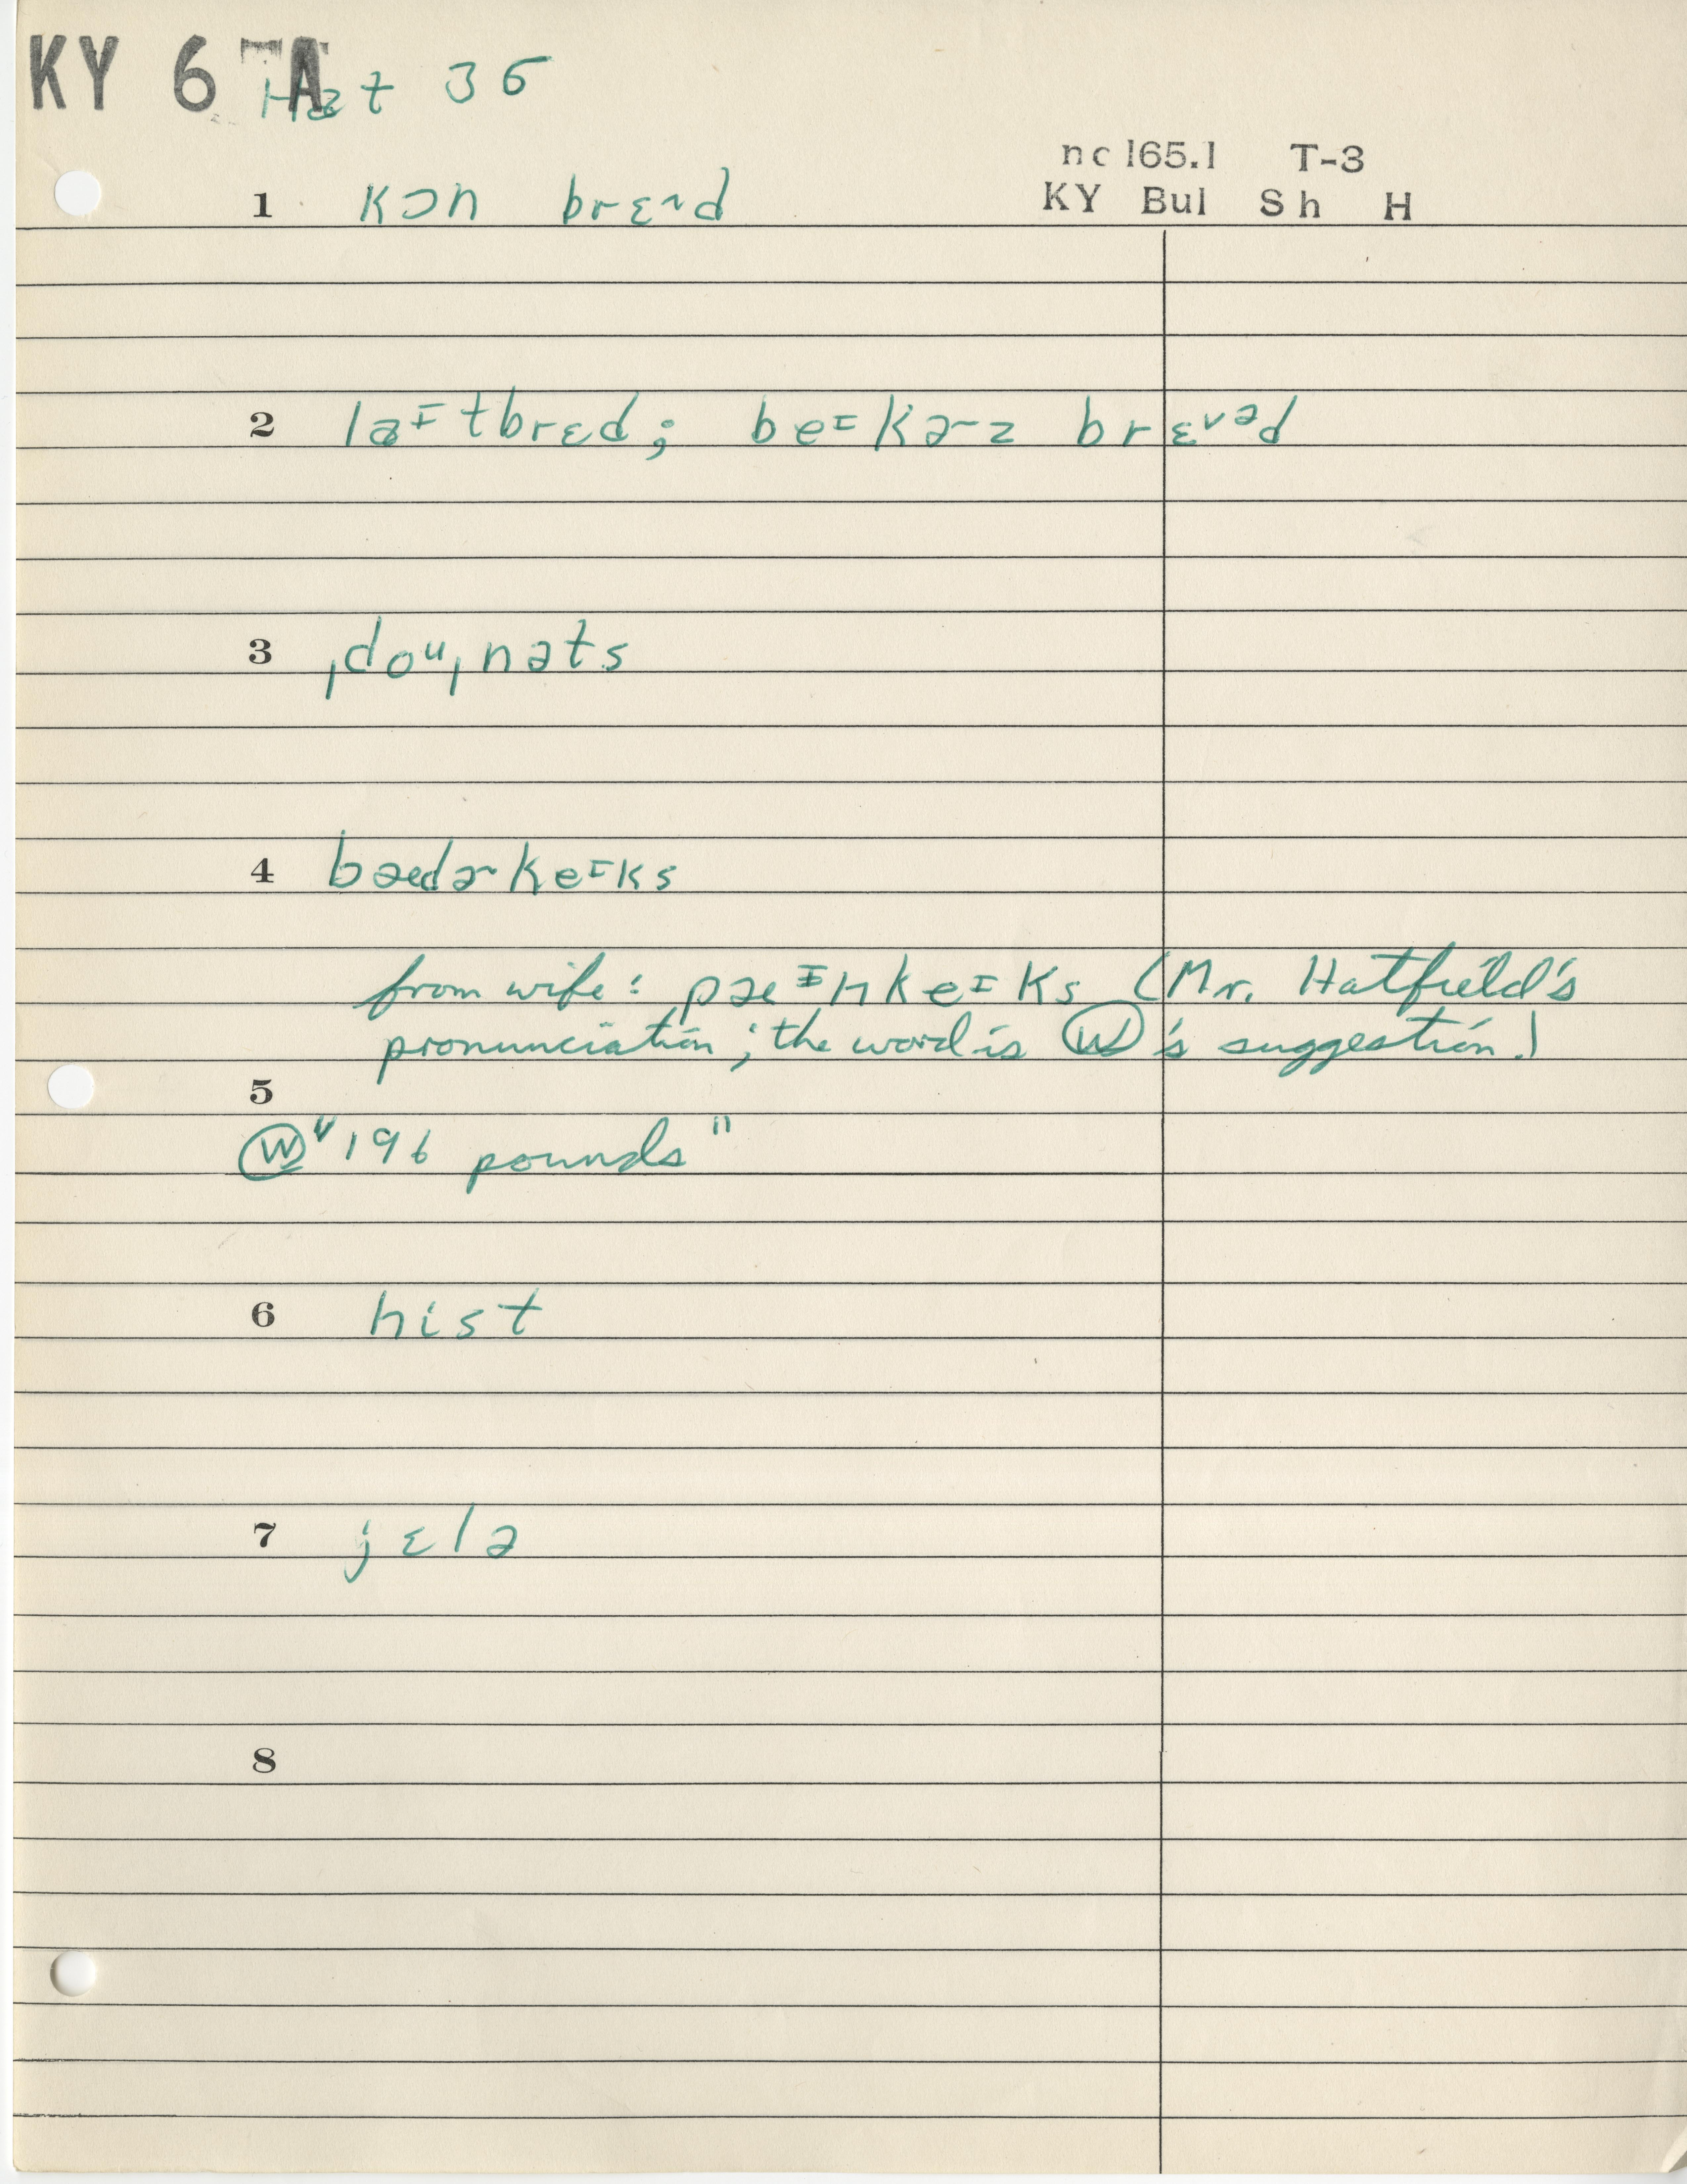 KY 6 A Hat 36
nc 165.1 T-3
KY Bul Sh H
1 kɔn brɛ˄d
2 laᵻtbrɛd; beᶦkɚz brɛ˅ᵊd
3 ˌdoᵘˌnəts
4 bædɚkeᶦks
from wife: pæᵻnkeᶦks (Mr. Hatfield's
pronunciation; the word is Ⓦ's suggestion.)
5
Ⓦ "196 pounds"
6 hist
7 jɛlə
8